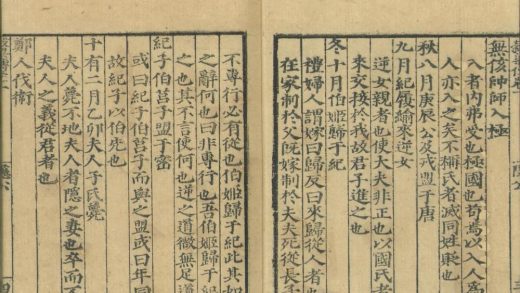 無侅帥師入極
入者内弗受也極國也苟焉以入人爲
人亦入之矣不稱氏者滅同姓貶也
秋八月庚辰公及戎盟于唐
九月紀履緰來逆女
逆女親者也使大夫非正也以國氏者
來交接於我故君子進之也
冬十月伯姬歸于紀
禮婦人謂嫁曰歸反曰來歸從人者也
在家制於父既嫁制於夫夫死從長子
不專行必有從也伯姬歸于紀此其如
之辭何也曰非專行也吾伯姬歸于紀
之也其不言使何也逆之道微無足道
紀子伯莒子盟于密
或曰紀子伯莒子而與之盟或曰年同
故紀子以伯先也
十有二月乙卯夫人子氏薨
夫人薨不地夫人者隱之妻也卒而不
夫人之義從君者也
鄭人伐衛